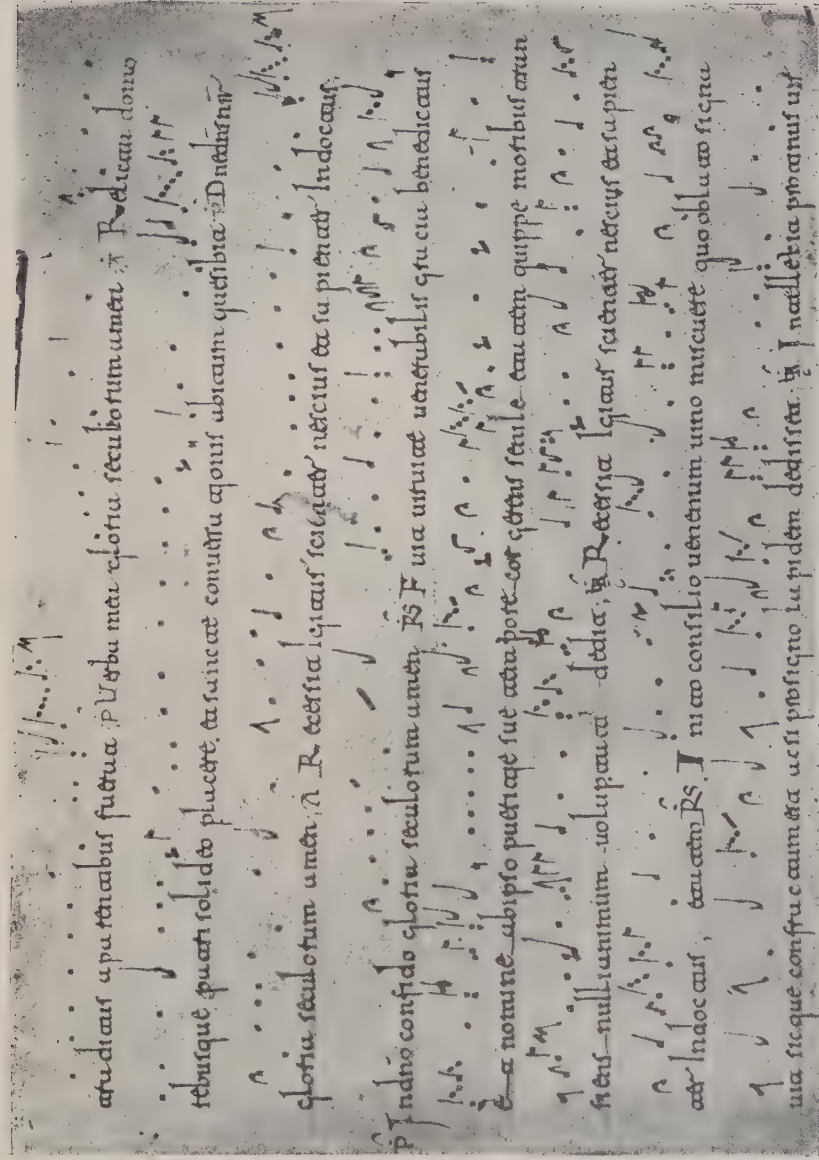 eruditus a parentibus fuerat P Verba mea gloria seculorum amen A Relicta domo
rebusque patris soli deo placere conuersationis abitum quesibit P Dne dns nr
gloria seculorum amen A Recessit igitur scienter nescius et sapienter Indoctus
P In dno confido gloria seculorum amen RS Fuit uir uite uenerabilis gra benedictus
et nomine ab ipso pueritie sue tempore cor gerens senile etatem quippe moribus tran
siens nulli animum uoluptati dedit. Recessit igitur scienter nescius et sapien
ter Indoctus, etatem RS. Inito consilio uenenum uino miscuere quo oblato signu
uir sicque confractum est ac si pro signo lapidem dedisset. Intellexit protinus uir